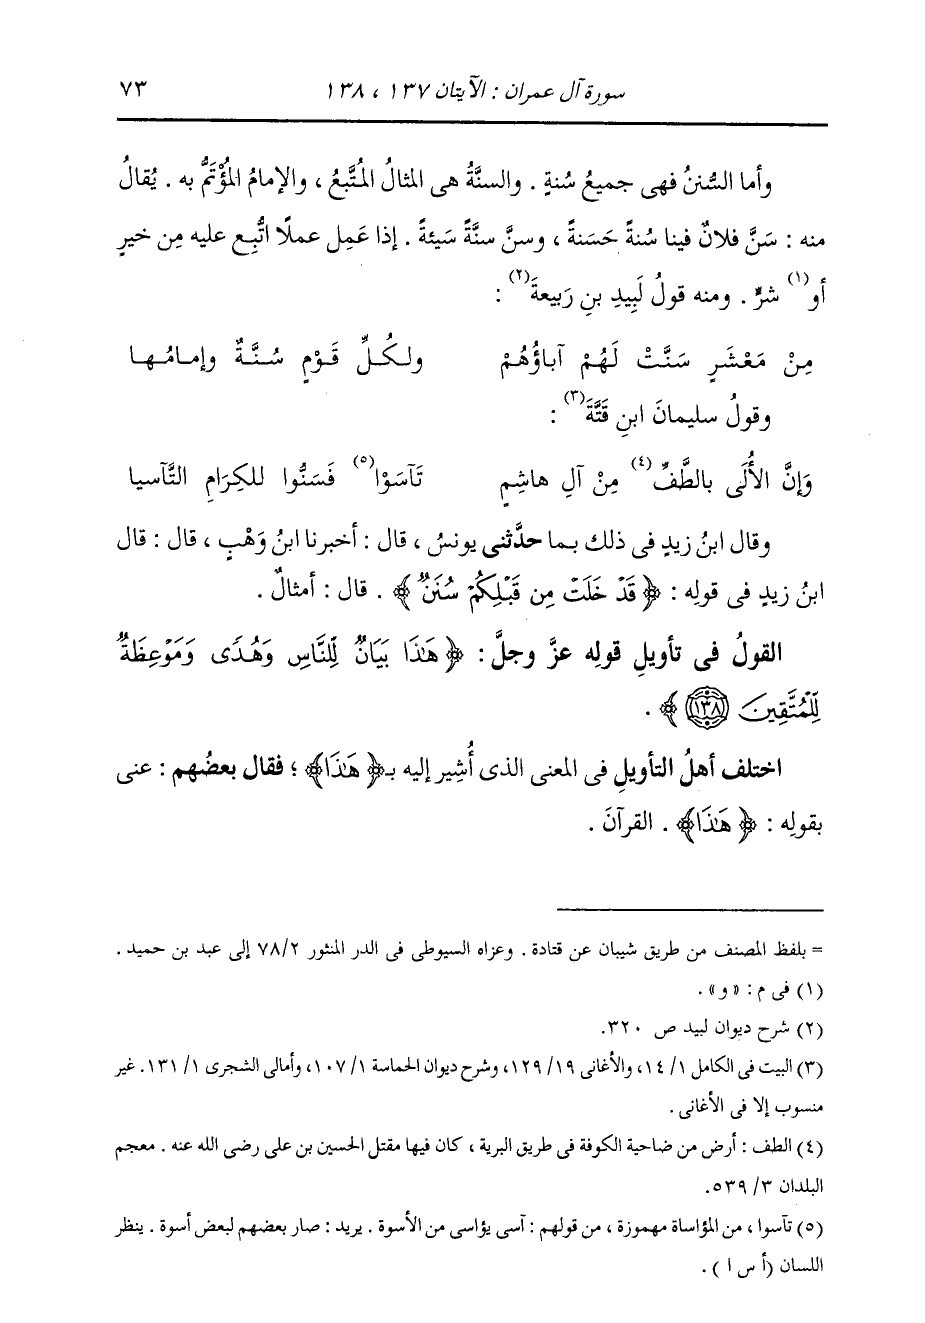 سورة آل عمران : الآيتان ١٣٧ ، ١٣٨ ٧٣
وأما السُّننُ فهى جميعُ سُنةٍ . والسنَّةُ هى المثالُ المُتَّبعُ ، والإمامُ المُؤْتَمُّ به . يُقالُ
منه : سَنَّ فلانٌ فينا سُنةً حَسَنةً ، وسنَّ سنَّةً سَيئةً . إذا عَمِل عملًا اتُّبِع عليه مِن خيرٍ
أو(١) شرٍّ . ومنه قولُ لَبِيدِ بنِ رَبيعةَ(٢) :
مِنْ مَعْشَرٍ سَنَّتْ لَهُمْ آباؤُهُمْ ولكُلِّ قَوْمٍ سُنَّةٌ وإمامُها
وقولُ سليمانَ ابنِ قَتَّةَ(٣) :
وَإنَّ الأُلَى بالطَّفِّ(٤) مِنْ آلِ هاشِمٍ تَآسَوْا(٥) فَسَنُّوا للكِرَامِ التَّآسيا
وقال ابنُ زيدٍ فى ذلك بما حدَّثنى يونسُ ، قال : أخبرنا ابنُ وَهْبٍ ، قال : قال
ابنُ زيدٍ فى قولِه : ﴿ قَدْ خَلَتْ مِن قَبْلِكُمْ سُنَنٌ ﴾ . قال : أمثالٌ .
القولُ فى تأويلِ قولِه عزَّ وجلَّ : ﴿ هَٰذَا بَيَانٌ لِّلنَّاسِ وَهُدًى وَمَوْعِظَةٌ
لِّلْمُتَّقِينَ ﴿١٣٨﴾ ﴾ .
اختلف أهلُ التأويلِ فى المعنى الذى أُشِير إليه بـ﴿ هَٰذَا ﴾ ؛ فقال بعضُهم : عنى
بقولِه : ﴿ هَٰذَا ﴾ . القرآنَ .
= بلفظ المصنف من طريق شيبان عن قتادة . وعزاه السيوطى فى الدر المنثور ٧٨/٢ إلى عبد بن حميد .
(١) فى م : « و » .
(٢) شرح ديوان لبيد ص ٣٢٠.
(٣) البيت فى الكامل ١/ ١٤، والأغانى ١٩/ ١٢٩، وشرح ديوان الحماسة ١/ ١٠٧، وأمالى الشجرى ١/ ١٣١. غير
منسوب إلا فى الأغانى .
(٤) الطف : أرض من ضاحية الكوفة فى طريق البرية ، كان فيها مقتل الحسين بن على رضى الله عنه . معجم
البلدان ٣/ ٥٣٩.
(٥) تآسوا ، من المؤاساة مهموزة ، من قولهم : آسى يؤاسى من الأسوة . يريد : صار بعضهم لبعض أسوة . ينظر
اللسان (أ س ا ) .